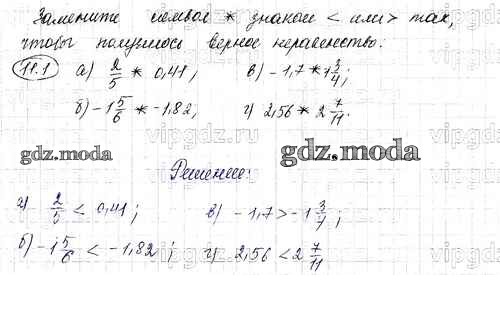 Замените символ * знаком < или > так,
чтобы получилось верное неравенство.
11.1 а) 2/5 * 0,41; в) -1,7 * 1 3/4;
б) -1 5/6 * -1,82; г) 2,56 * 2 7/11.
gdz.moda gdz.moda
Решение:
а) 2/5 < 0,41; в) -1,7 > -1 3/7;
б) -1 5/6 < -1,82; г) 2,56 < 2 7/11
vipgdz.ru